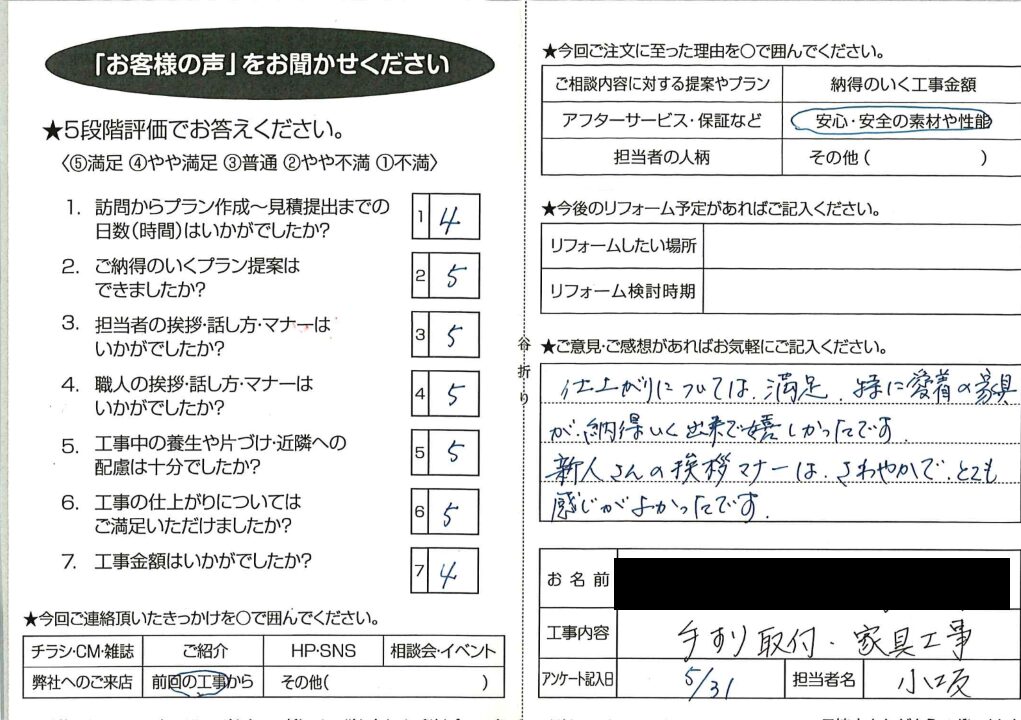 「お客様の声」をお聞かせください
★5段階評価でお答えください。
〈⑤満足 ④やや満足 ③普通 ②やや不満 ①不満〉
1. 訪問からプラン作成～見積提出までの
日数(時間)はいかがでしたか?
1 4
2. ご納得のいくプラン提案は
できましたか?
2 5
3. 担当者の挨拶・話し方・マナーは
いかがでしたか?
3 5
4. 職人の挨拶・話し方・マナーは
いかがでしたか?
4 5
5. 工事中の養生や片づけ・近隣への
配慮は十分でしたか?
5 5
6. 工事の仕上がりについては
ご満足いただけましたか?
6 5
7. 工事金額はいかがでしたか?
7 4
★今回ご連絡頂いたきっかけを○で囲んでください。
チラシ・CM・雑誌 ご紹介 HP・SNS 相談会・イベント
弊社へのご来店 前回の工事から その他( )
谷折り
★今回ご注文に至った理由を○で囲んでください。
ご相談内容に対する提案やプラン 納得のいく工事金額
アフターサービス・保証など 安心・安全の素材や性能
担当者の人柄 その他( )
★今後のリフォーム予定があればご記入ください。
リフォームしたい場所
リフォーム検討時期
★ご意見・ご感想があればお気軽にご記入ください。
仕上がりについては、満足、特に愛着の家具
が、納得いく出来で嬉しかったです.
新人さんの挨拶マナーは、さわやかで、とても
感じがよかったです.
お名前
工事内容 手すり取付・家具工事
アンケート記入日 5/31 担当者名 小坂